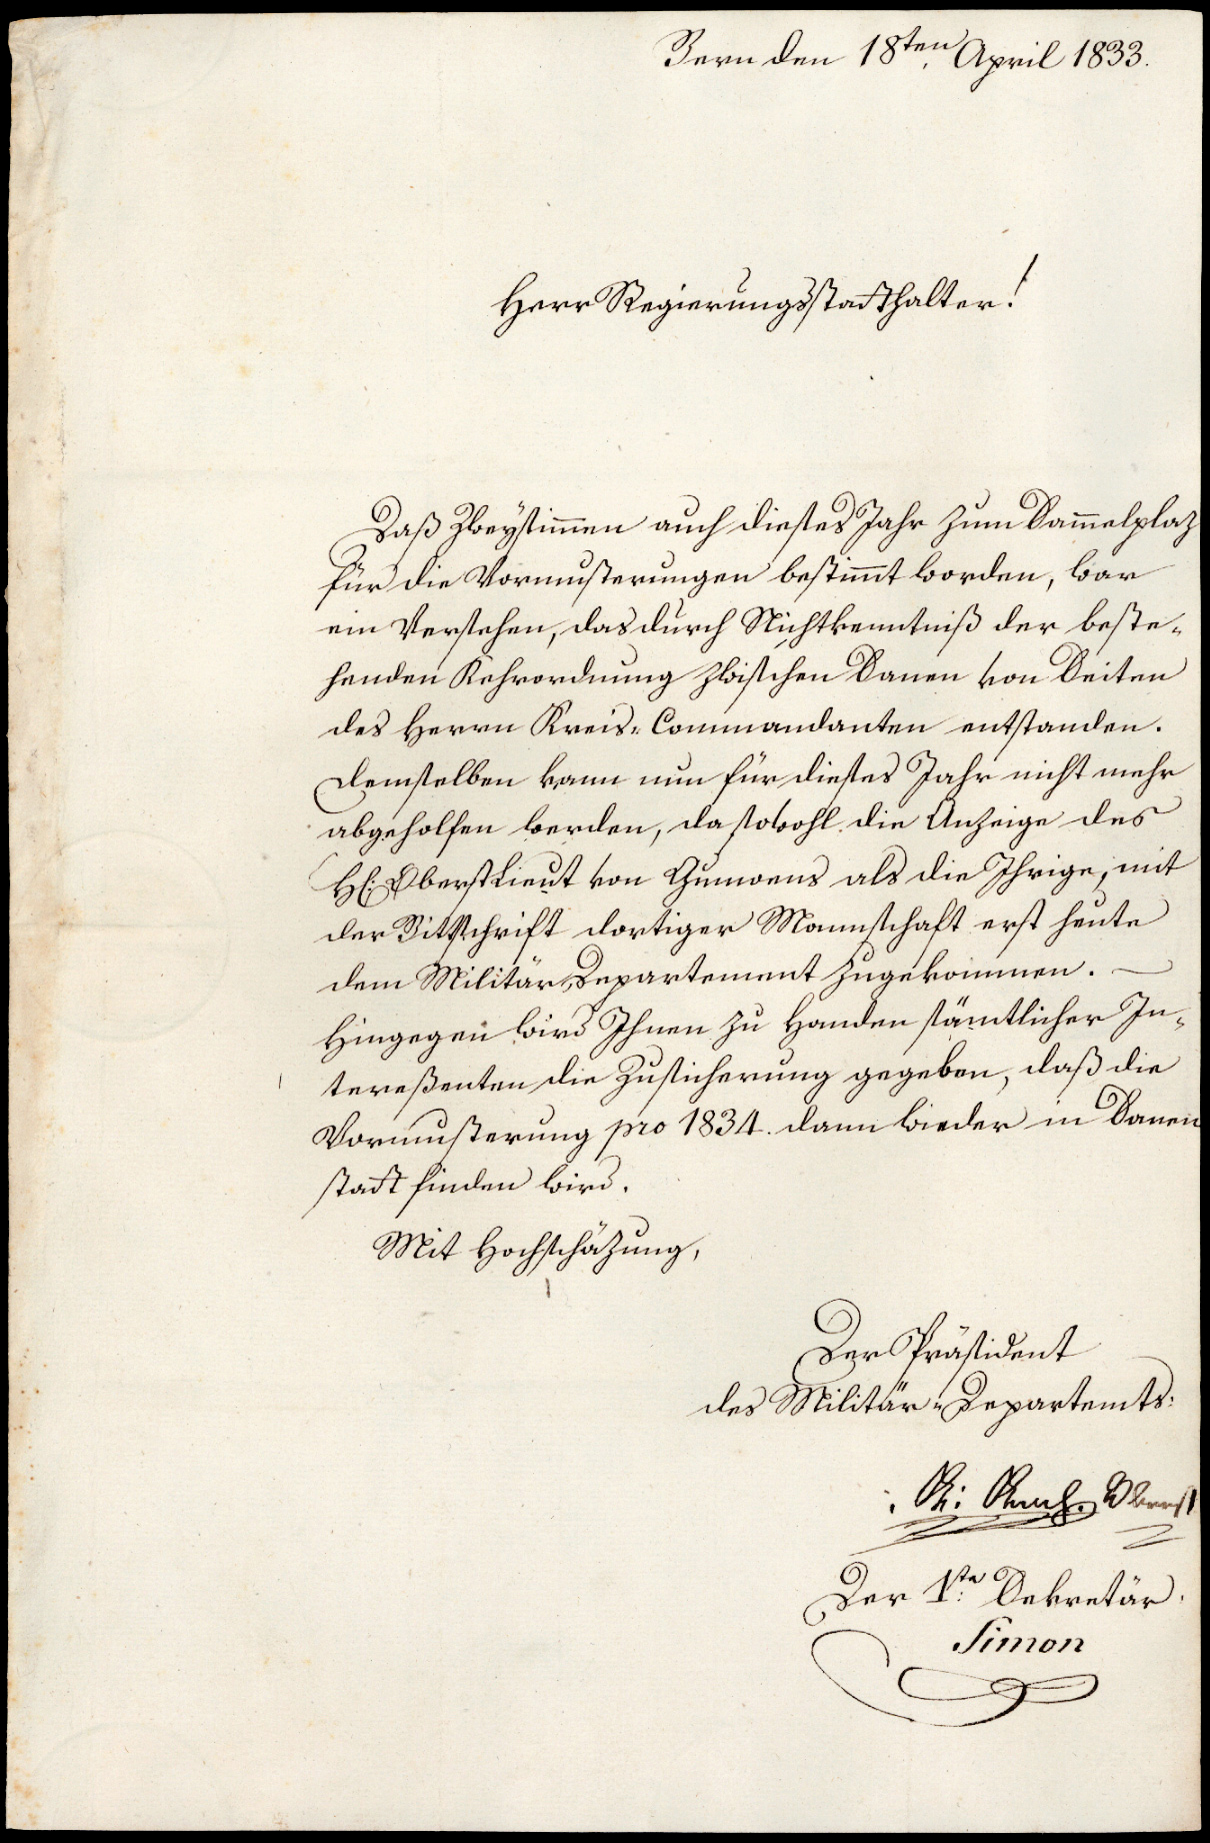 Bern den 18ten April 1833.
Herr Regierungsstatthalter!
Daß Zweysimmen auch dieses Jahr zum Sammelplaz
für die Vormusterungen bestimmt worden, war
ein Versehen, das durch Nichtkenntniß der beste-
henden Kehrordnung zwischen Sanen von Seiten
des Herrn Kreis-Commandanten entstanden.
Demselben kann nun für dieses Jahr nicht mehr
abgeholfen werden, da sowohl die Anzeige des
H: OberstLieut von Gumoens als die Ihrige, mit
der Bittschrift dortiger Mannschaft erst heute
dem Militär Departement zugekommen. —
Hingegen wird Ihnen zu Handen sämtlicher In-
tereßenten die Zusicherung gegeben, daß die
Vormusterung pro 1834. dann wieder in Sanen
statt finden wird.
Mit Hochschäzung,
Der Präsident
des Militär-Departemts:
Oberst
Der 1ste Sekretär.
Simon